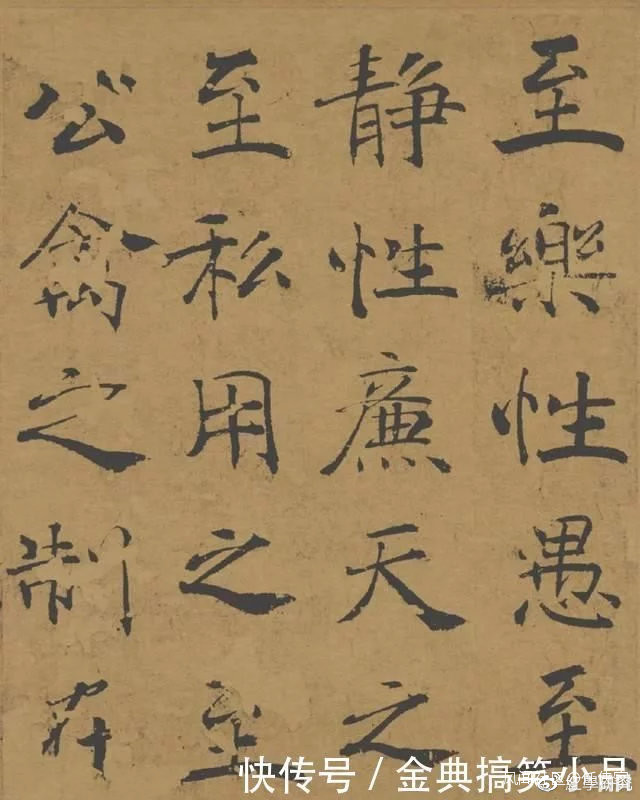 至樂性愚至
靜性廉天之
至私用之至
公禽之制在
快传号 / 金典搞笑小品